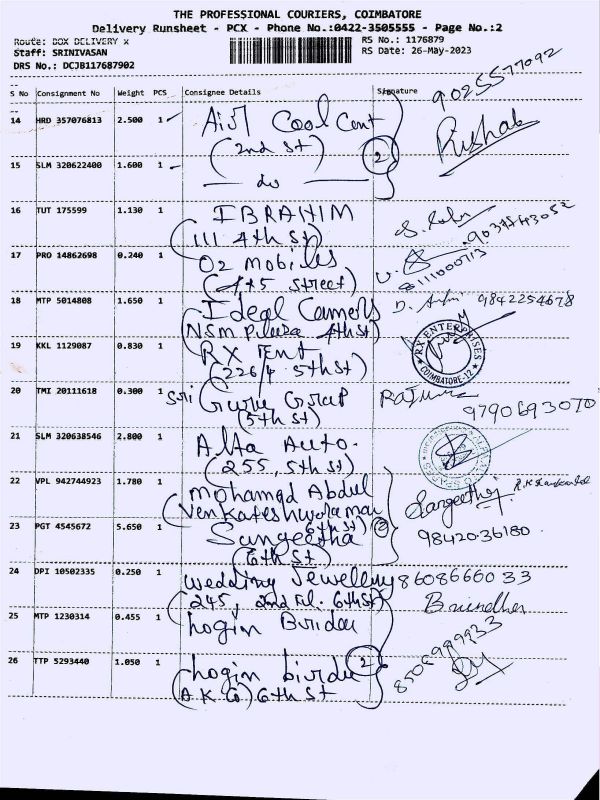 THE PROFESSIONAL COURIERS, COIMBATORE
Delivery Runsheet - PCX - Phone No.:0422-3505555 - Page No.:2
Route: BOX DELIVERY x RS No.: 1176879
Staff: SRINIVASAN RS Date: 26-May-2023
DRS No.: DCJB117687902
S No Consignment No Weight PCS Consignee Details Signature
9025577092
14 HRD 357076813 2.500 1 Air Cool Cent
(2nd St) 2 Rishab
15 SLM 320622400 1.600 1 do
16 TUT 175599 1.130 1 IBRAHIM
(111 4th St)
17 PRO 14862698 0.240 1 O2 Mobiles 8111000713
(4+5 Street)
18 MTP 5014808 1.650 1 Ideal 9842254678
(NSM Plaza 4th St)
19 KKL 1129087 0.830 1 RX Ent RX ENTERPRISES
(226/4 5th St) COIMBATORE-12
20 TMI 20111618 0.300 1 Sri Guru Group
(5th St) 9790693070
21 SLM 320638546 2.800 1 Alta Auto.
(255, 5th St)
22 VPL 942744923 1.780 1 Mohamed Abdul
Venkateshwaraman Sangeetha
6th St) 2
23 PGT 4545672 5.650 1 Sungeetha 98420.36180
(6th St)
24 DPI 10502335 0.250 1 Wedding Jewellery 8608666033
(245, 2nd Fl. 6th St)
25 MTP 1230314 0.455 1 hogin Birdee
26 TTP 5293440 1.050 1 hogin birdee 2
(A K G) 6th St